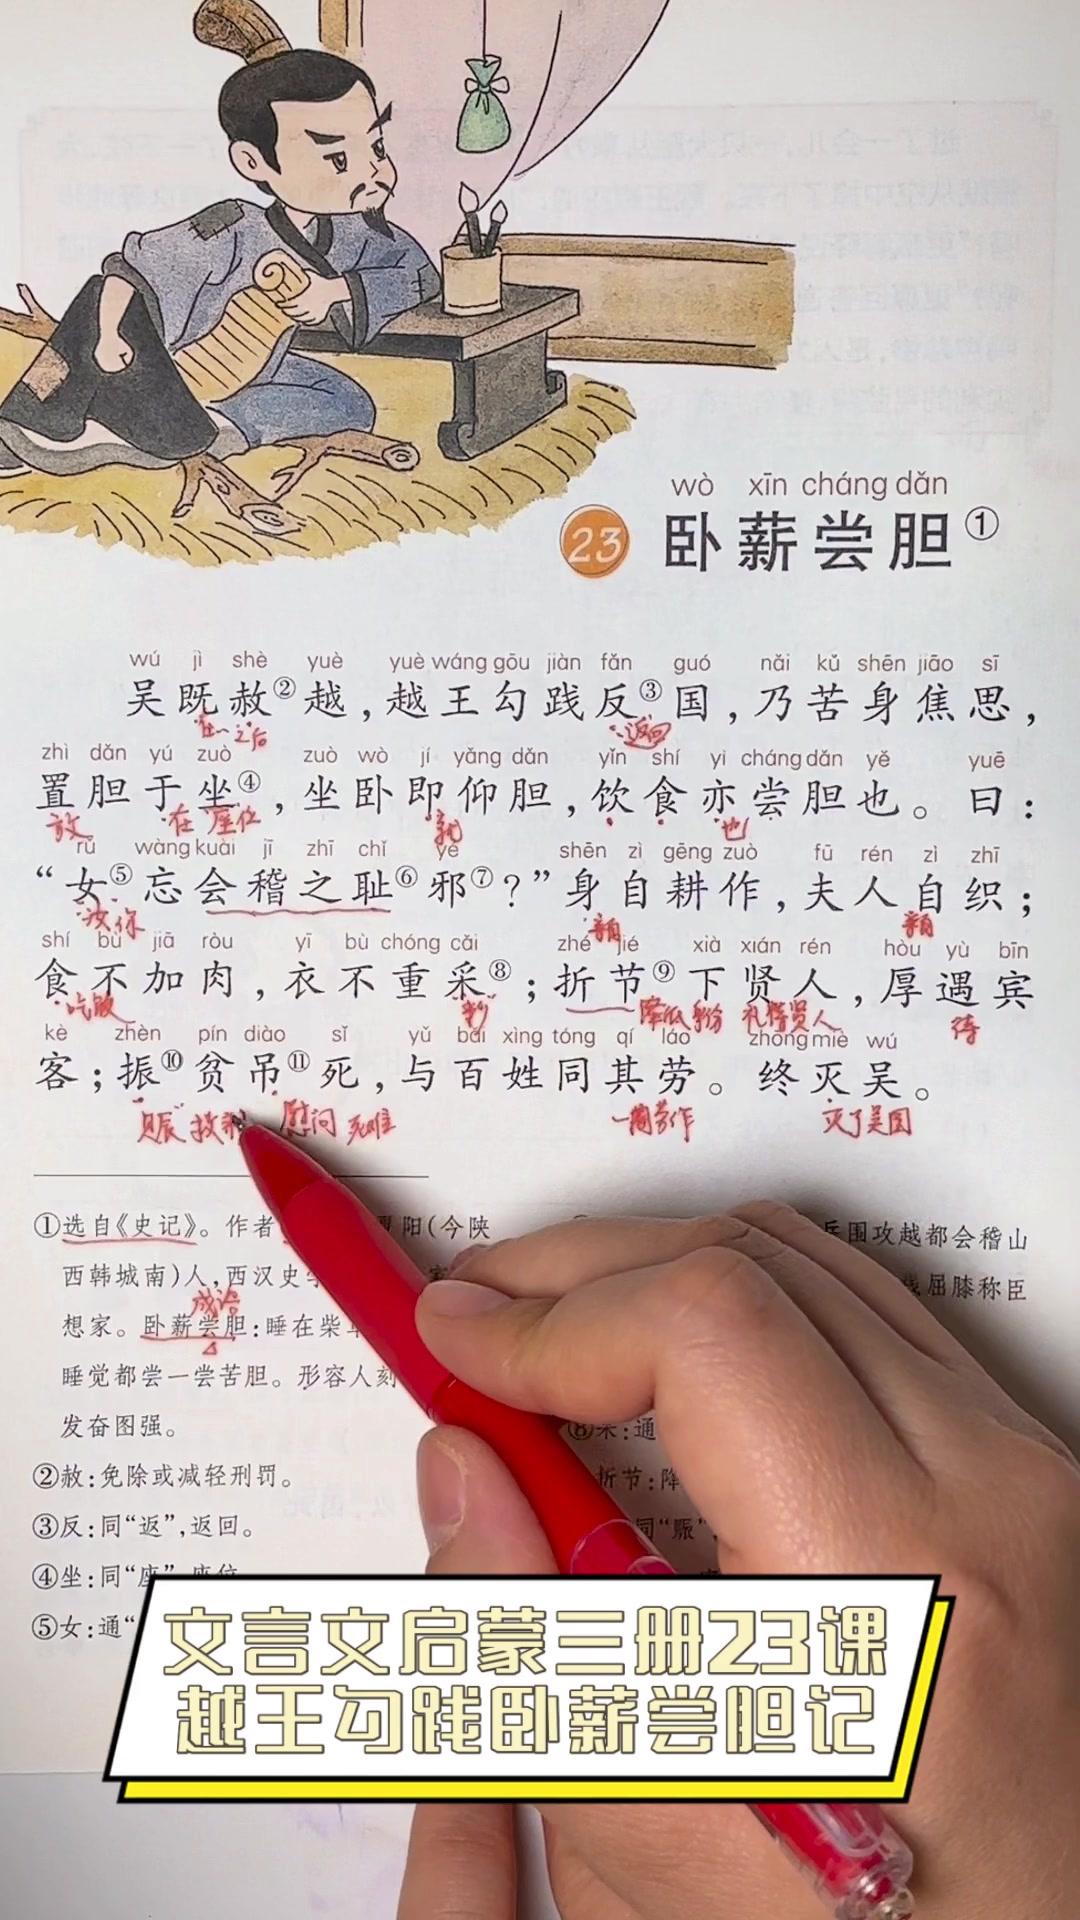 wò xīn cháng dǎn
23 卧薪尝胆①
wú jì shè yuè yuè wáng gōu jiàn fǎn guó nǎi kǔ shēn jiāo sī
吴既赦②越，越王勾践反③国，乃苦身焦思，
在…之后 返回
zhì dǎn yú zuò zuò wò jí yǎng dǎn yǐn shí yì cháng dǎn yě yuē
置胆于坐④，坐卧即仰胆，饮食亦尝胆也。曰：
放 在 座位 就 也
rǔ wàng kuài jī zhī chǐ yé
“女⑤忘会稽之耻⑥邪⑦？”身自耕作，夫人自织；
shēn zì gēng zuò fū rén zì zhī
汝 你 亲自 亲自
shí bù jiā ròu yī bù chóng cǎi zhé jié xià xián rén hòu yù bīn
食不加肉，衣不重采⑧；折节⑨下贤人，厚遇宾
吃饭 降低身份 礼待贤人 待
kè zhèn pín diào sǐ yǔ bǎi xìng tóng qí láo zhōng miè wú
客；振⑩贫吊⑪死，与百姓同其劳。终灭吴。
赈 慰问 死难 一同劳作 灭了吴国
①选自《史记》。作者 阳(今陕
西韩城南)人，西汉史学
想家。卧薪尝胆：睡在柴草
成语
睡觉都尝一尝苦胆。形容人刻
发奋图强。
②赦：免除或减轻刑罚。
③反：同“返”，返回。
④坐：同“座”，座位
⑤女：通“
兵围攻越都会稽山
屈膝称臣
⑧采：通
折节：降
同“赈”，
文言文启蒙三册23课
越王勾践卧薪尝胆记